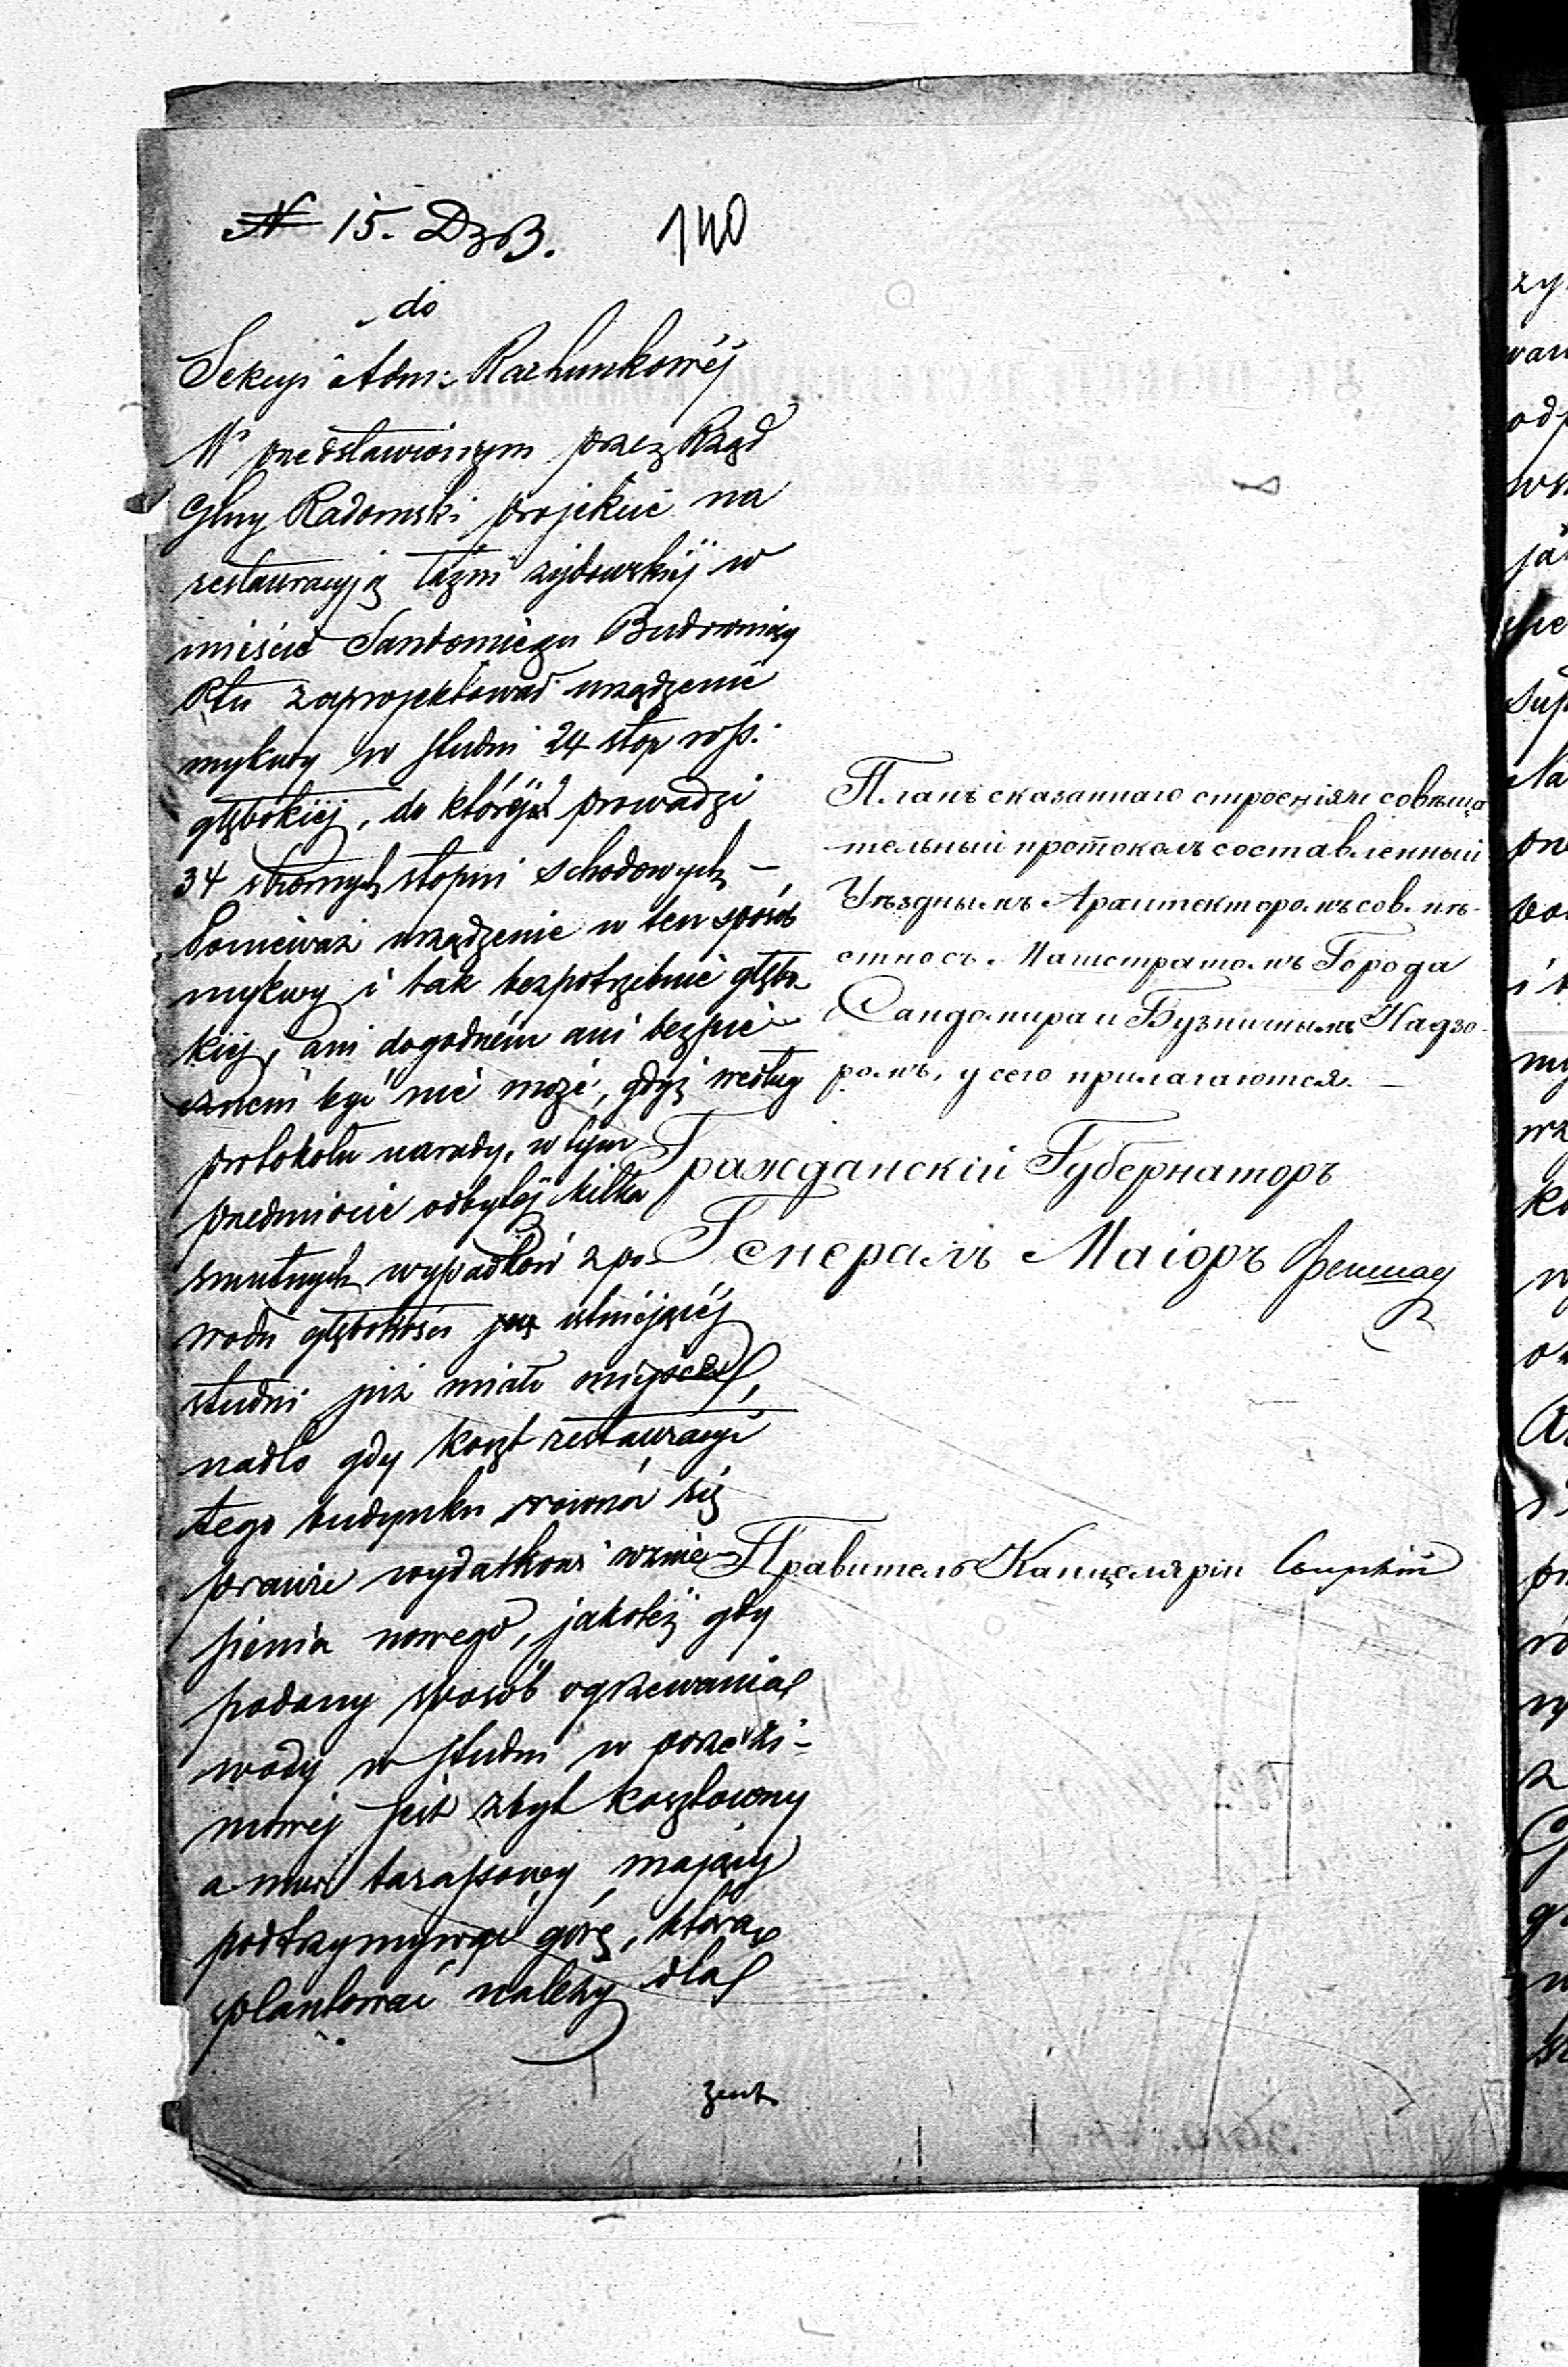 N 15. DzB. 140
do
Sekcyi Adm: Rachunkowéj
W przedstawionym przez Rząd
Glny Radomski projekcie na
restauracyją łaźni żydowskiéj w
mieście Sandomierzu Budowniczy
Ptu zaprojektował urządzenie
mykwy w studni 24 stop ross.
głębokiéj, do któréj prowadzi
34 stromych stopni schodowych –
Ponieważ urządzenie w ten sposób
mykwy i tak bezpotrzebnie głębo
kiéj, ani dogodném ani bezpie-
cznem być nie może, gdyż według
protokołu narady, w tym
przedmiocie odbytéj kilka
smutnych wypadków z po-
wodu głębokości istniejącéj
studni już miało miejsce,
nadto gdy koszt restauracyi
tego budynku równa się
prawie wydatkowi wznie-
sienia nowego, jakotéż gdy
podany sposób ogrzewania
wody w studni w porze zi-
mowéj jest zbyt kosztowny
a mur tarassowy mający
podtrzymywać górę, którą
splantować należy dla
Планъ сказаннаго строенія и совѣща
тельный протоколъ составленный
Уѣзднымъ Архитекторомъ совмѣ-
стно съ Магистратомъ Города
Сандомира и Бузничнымъ Надзо-
ромъ, у сего прилагаются. –
Гражданскій Губернаторъ
Генералъ Маіоръ
Правитель Канцеляріи